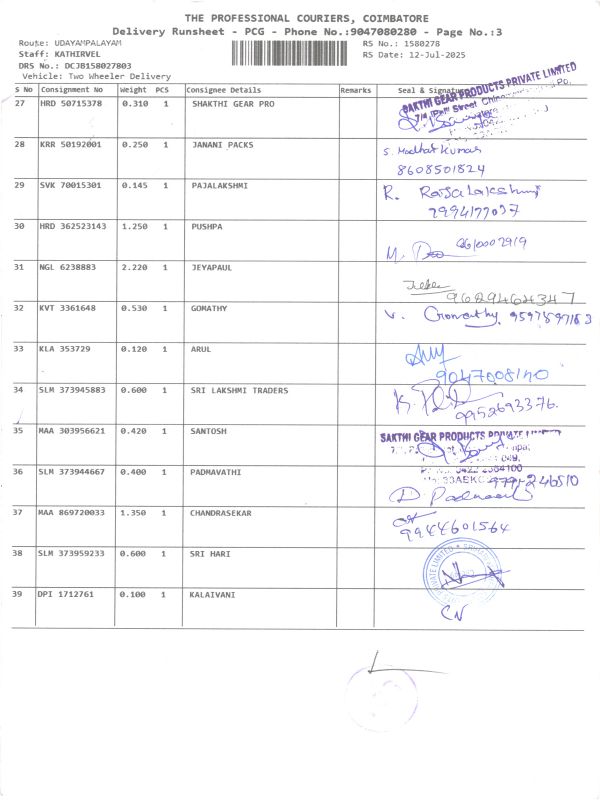 THE PROFESSIONAL COURIERS, COIMBATORE
Delivery Runsheet - PCG - Phone No.:9047080280 - Page No.:3
Route: UDAYAMPALAYAM
RS No.: 1580278
Staff: KATHIRVEL
RS Date: 12-Jul-2025
DRS No.: DCJB158027803
Vehicle: Two Wheeler Delivery
S No Consignment No Weight PCS Consignee Details Remarks Seal & Signature
SAKTHI GEAR PRODUCTS PRIVATE LIMITED
27 HRD 50715378 0.310 1 SHAKTHI GEAR PRO
28 KRR 50192001 0.250 1 JANANI PACKS S. Madhat Kumar
8608501824
29 SVK 70015301 0.145 1 PAJALAKSHMI R. Rajalakshmi
30 HRD 362523143 1.250 1 PUSHPA
31 NGL 6238883 2.220 1 JEYAPAUL
9629464347
32 KVT 3361648 0.530 1 GOMATHY V. Gomathy
33 KLA 353729 0.120 1 ARUL
9047008140
34 SLM 373945883 0.600 1 SRI LAKSHMI TRADERS
9952693376.
35 MAA 303956621 0.420 1 SANTOSH SAKTHI GEAR PRODUCTS PRIVATE
36 SLM 373944667 0.400 1 PADMAVATHI
37 MAA 869720033 1.350 1 CHANDRASEKAR
9944601564
38 SLM 373959233 0.600 1 SRI HARI PRIVATE LIMITED
39 DPI 1712761 0.100 1 KALAIVANI CN